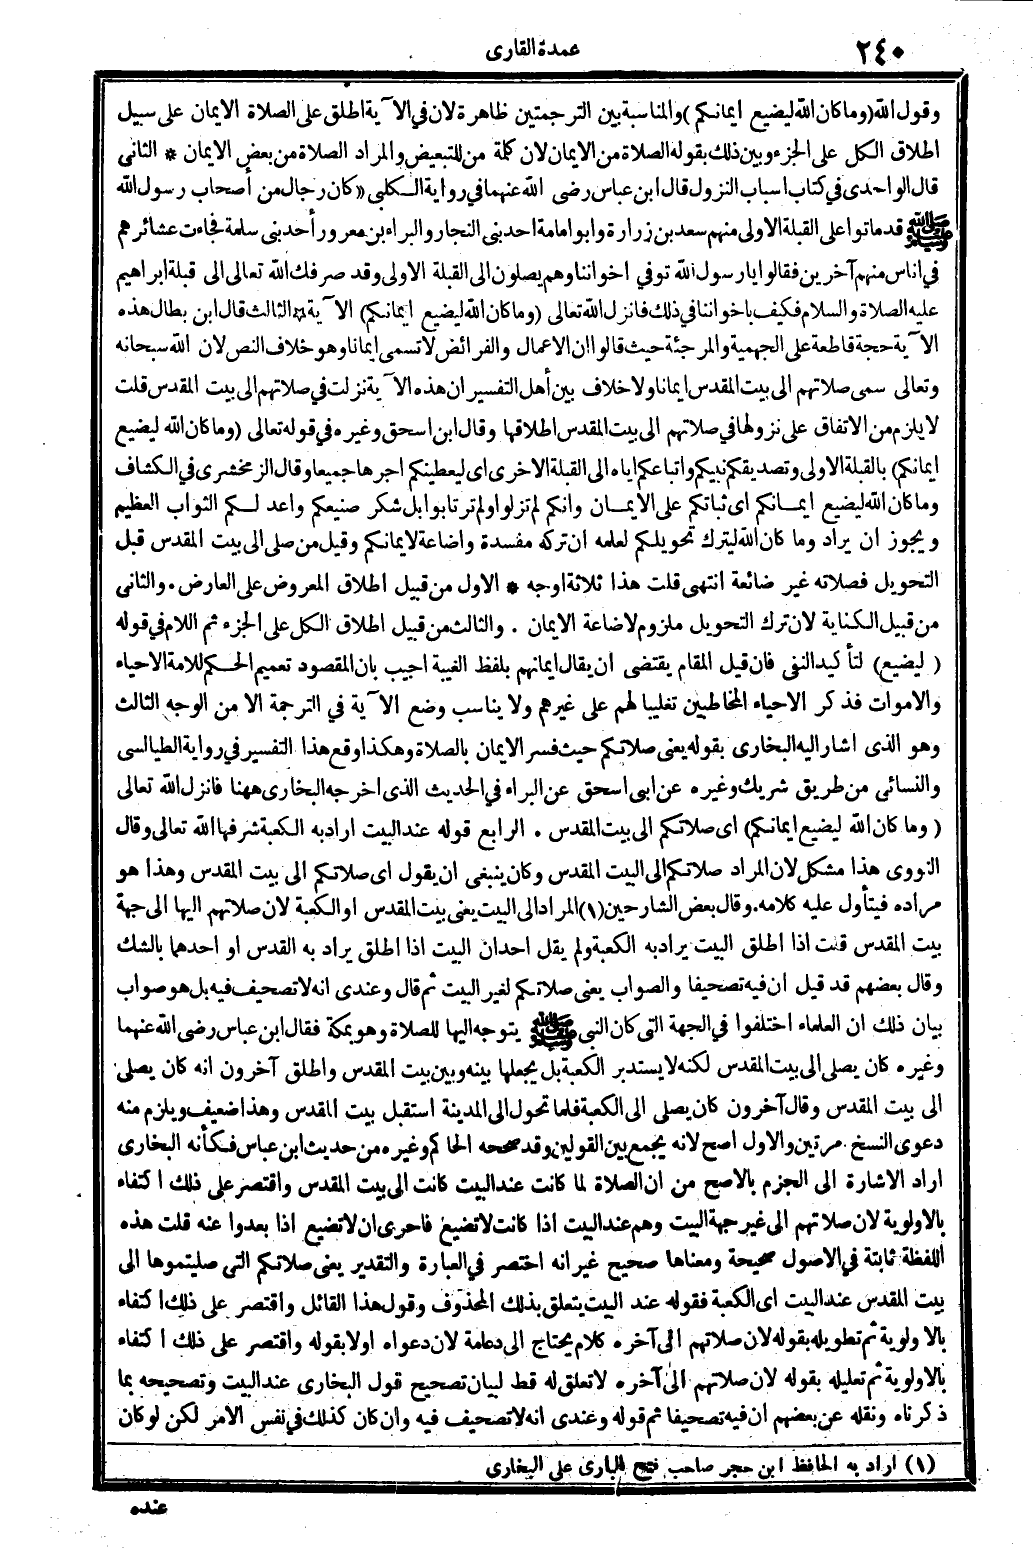 ٢٤٠
عمدة القارى
وقول الله (وما كان الله ليضيع ايمانكم) والمناسبة بين الترجمتين ظاهرة لان في الآية اطلق على الصلاة الايمان على سبيل
اطلاق الكل على الجزء وبين ذلك بقوله الصلاة من الايمان لان كلمة من للتبعيض والمراد الصلاة من بعض الايمان * الثانى
قال الواحدى في كتاب اسباب النزول قال ابن عباس رضى الله عنهما في رواية الكلبى «كان رجال من أصحاب رسول الله
ﷺ قد ماتوا على القبلة الاولى منهم سعد بن زرارة وابو امامة احد بنى النجار والبراء بن معرور أحد بنى سلمة فجاءت عشائرهم
في اناس منهم آخرين فقالوا يا رسول الله توفي اخواننا وهم يصلون الى القبلة الاولى وقد صرفك الله تعالى الى قبلة ابراهيم
عليه الصلاة والسلام فكيف باخواننا في ذلك فانزل الله تعالى (وما كان الله ليضيع ايمانكم) الآية * الثالث قال ابن بطال هذه
الآية حجة قاطعة على الجهمية والمرجئة حيث قالوا ان الاعمال والفرائض لا تسمى ايمانا وهو خلاف النص لان الله سبحانه
وتعالى سمى صلاتهم الى بيت المقدس ايمانا ولا خلاف بين أهل التفسير ان هذه الآية نزلت في صلاتهم الى بيت المقدس قلت
لا يلزم من الاتفاق على نزولها في صلاتهم الى بيت المقدس اطلاقها وقال ابن اسحق وغيره في قوله تعالى (وما كان الله ليضيع
ايمانكم) بالقبلة الاولى وتصديقكم نبيكم واتباعكم اياه الى القبلة الاخرى اى ليعطينكم اجرها جميعا وقال الزمخشرى في الكشاف
وما كان الله ليضيع ايمـانكم اى ثباتكم على الايمـان وانكم لم تزلوا ولم ترتابوا بل شكر صنيعكم واعد لكم الثواب العظيم
ويجوز ان يراد وما كان الله ليترك تحويلكم لعلمه ان تركه مفسدة واضاعة لايمانكم وقيل من صلى الى بيت المقدس قبل
التحويل فصلاته غير ضائعة انتهى قلت هذا ثلاثة اوجه * الاول من قبيل اطلاق المعروض على العارض . والثانى
من قبيل الكناية لان ترك التحويل ملزوم لاضاعة الايمان . والثالث من قبيل اطلاق الكل على الجزء ثم اللام في قوله
( ليضيع) لتأكيد النفى فان قيل المقام يقتضى ان يقال ايمانهم بلفظ الغيبة اجيب بان المقصود تعميم الحكم للامة الاحياء
والاموات فذكر الاحياء المخاطبين تغليبا لهم على غيرهم ولا يناسب وضع الآية في الترجمة الا من الوجه الثالث
وهو الذى اشار اليه البخارى بقوله يعنى صلاتكم حيث فسر الايمان بالصلاة وهكذا وقع هذا التفسير في رواية الطيالسى
والنسائى من طريق شريك وغيره عن ابى اسحق عن البراء في الحديث الذى اخرجه البخارى ههنا فانزل الله تعالى
( وما كان الله ليضيع ايمانكم) اى صلاتكم الى بيت المقدس . الرابع قوله عند البيت اراد به الكعبة شرفها الله تعالى وقال
النووى هذا مشكل لان المراد صلاتكم الى البيت المقدس وكان ينبغى ان يقول اى صلاتكم الى بيت المقدس وهذا هو
مراده فيتأول عليه كلامه. وقال بعض الشارحين (١) المراد الى البيت يعنى بيت المقدس او الكعبة لان صلاتهم اليها الى جهة
بيت المقدس قلت اذا اطلق البيت يراد به الكعبة ولم يقل احد ان البيت اذا اطلق يراد به القدس او احدها بالشك
وقال بعضهم قد قيل ان فيه تصحيفا والصواب يعنى صلاتكم لغير البيت ثم قال وعندى انه لا تصحيف فيه بل هو صواب
بيان ذلك ان العلماء اختلفوا في الجهة التى كان النبى ﷺ يتوجه اليها للصلاة وهو بمكة فقال ابن عباس رضى الله عنهما
وغيره كان يصلى الى بيت المقدس لكنه لا يستدبر الكعبة بل يجعلها بينه وبين بيت المقدس واطلق آخرون انه كان يصلى
الى بيت المقدس وقال آخرون كان يصلى الى الكعبة فلما تحول الى المدينة استقبل بيت المقدس وهذا ضعيف ويلزم منه
دعوى النسخ مرتين والاول اصح لانه يجمع بين القولين وقد صححه الحاكم وغيره من حديث ابن عباس فكأنه البخارى
اراد الاشارة الى الجزم بالاصح من ان الصلاة لما كانت عند البيت كانت الى بيت المقدس واقتصر على ذلك اكتفاء
بالاولوية لان صلاتهم الى غير جهة البيت وهم عند البيت اذا كانت لا تضيع فاحرى ان لا تضيع اذا بعدوا عنه قلت هذه
اللفظة ثابتة في الاصول صحيحة ومعناها صحيح غير انه اختصر في العبارة والتقدير يعنى صلاتكم التى صليتموها الى
بيت المقدس عند البيت اى الكعبة فقوله عند البيت يتعلق بذلك المحذوف وقول هذا القائل واقتصر على ذلك اكتفاء
بالاولوية ثم تطويله بقوله لان صلاتهم الى آخره كلام يحتاج الى دعامة لان دعواه اولا بقوله واقتصر على ذلك اكتفاء
بالاولوية ثم تعليله بقوله لان صلاتهم الى آخره لا تعلق له قط لبيان تصحيح قول البخارى عند البيت وتصحيحه بما
ذكرناه ونقله عن بعضهم ان فيه تصحيفا ثم قوله وعندى انه لا تصحيف فيه وان كان كذلك في نفس الامر لكن لو كان
(١) اراد به الحافظ ابن حجر صاحب فتح البارى على البخارى
عنده